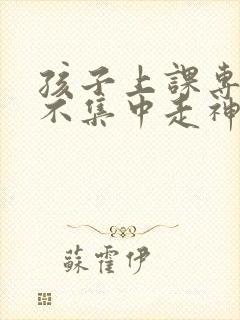 孩子上課專
不集中走神
蘇霍伊